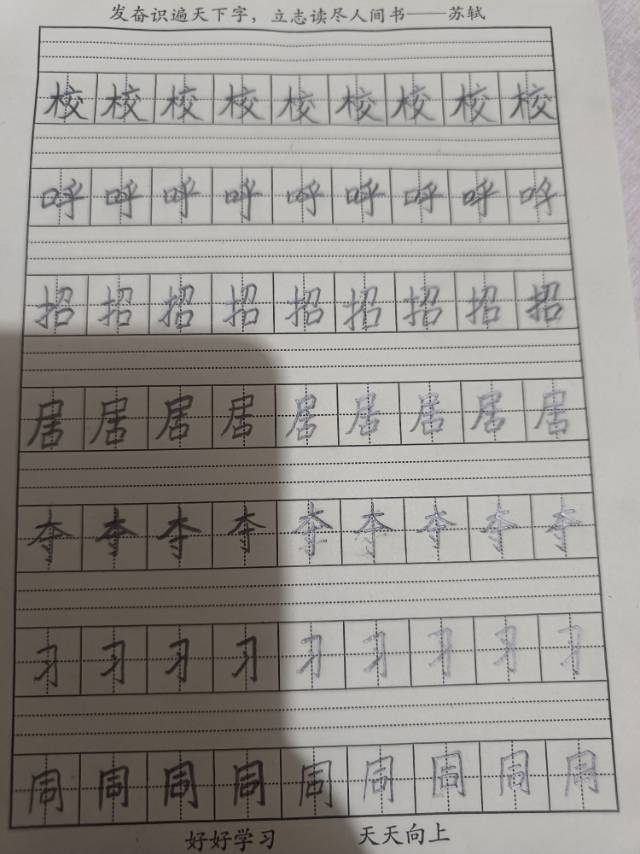 发奋识遍天下字，立志读尽人间书——苏轼
校校校校校校校校校
呼呼呼呼呼呼呼呼呼
招招招招招招招招招
居居居居居居居居居
李李李李李李李李李
习习习习习习习习习
同同同同同同同同同
好好学习 天天向上